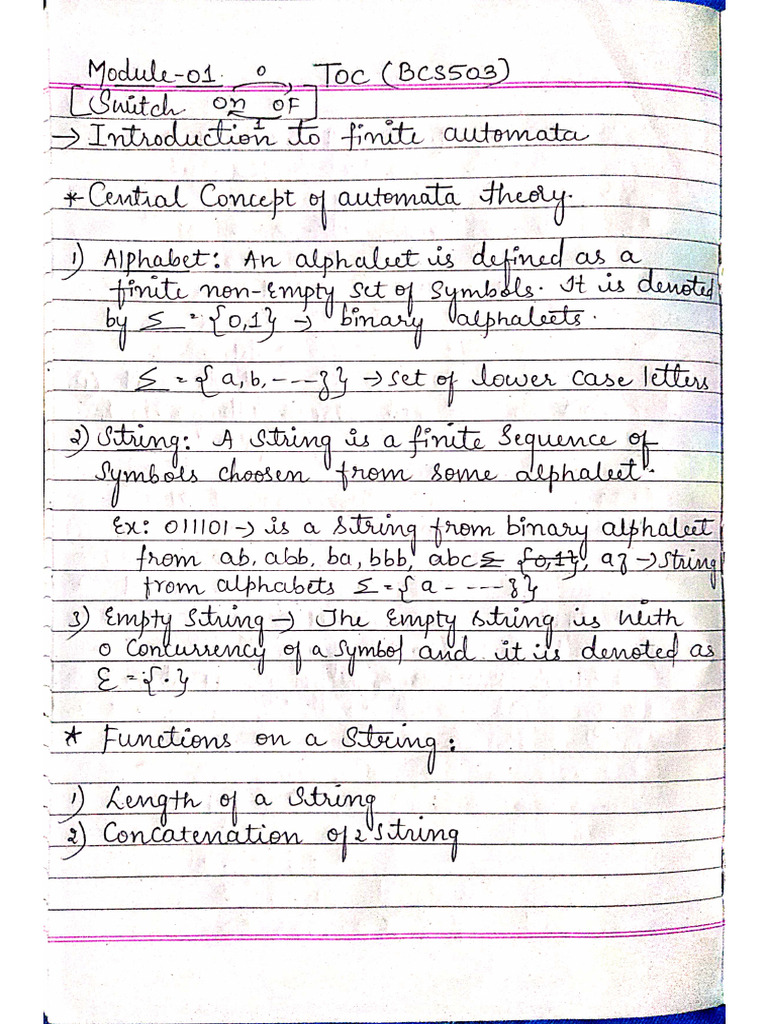 Module-01. 0 TOC (BCS503)
[Switch on OF]
1
→ Introduction to finite automata
* Central Concept of automata theory.
1) Alphabet: An alphabet is defined as a
finite non-Empty set of symbols. It is denoted
by Σ = {0,1} → binary alphabets.
Σ = {a,b,---z} → set of lower case letters
2) String: A string is a finite sequence of
symbols choosen from some alphabet.
Ex: 011101 → is a string from binary alphabet
from ab, abb, ba, bbb, abc Σ {0,1}, az → string
from alphabets Σ = {a - ---- z}
3) Empty String → The Empty string is with
0 Concurrency of a symbol and it is denoted as
Ɛ = {.}
* Functions on a String:
1) Length of a String
2) Concatenation of 2 string